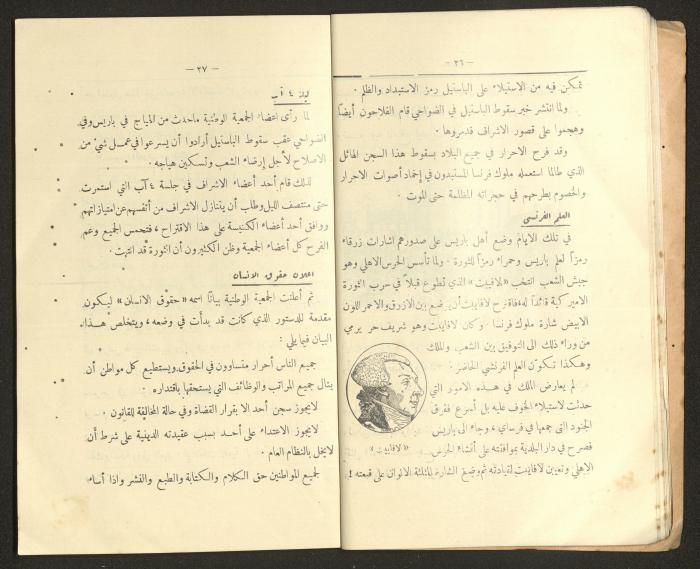 — ٢٦ —
تمكن فيه من الاستيلاء على الباستيل رمز الاستبداد والظلم .
ولما انتشر خبر سقوط الباستيل في الضواحي قام الفلاحون أيضاً
وهجموا على قصور الاشراف فدمروها .
وقد فرح الاحرار في جميع البلاد بسقوط هذا السجن الهائل
الذي طالما استعمله ملوك فرنسا المستبدون في إخماد أصوات الاحرار
والخصوم بطرحهم في حجراته المظلمة حتى الموت .
العلم الفرنسي
في تلك الايام وضع أهل باريس على صدورهم اشارات زرقاء
رمزاً لعلم باريس وحمراء رمزاً للثورة . ولما تأسس الحرس الاهلي وهو
جيش الشعب انتخب « لافاييت » الذي تطوع قبلاً في حرب الثورة
الاميركية قائداً له فاقترح لافاييت أن يوضع بين الازرق والاحمر اللون
الابيض شارة ملوك فرنسا . وكان لافاييت وهو شريف حر يرمي
من وراء ذلك الى التوفيق بين الشعب والملك
وهكذا تكوّن العلم الفرنسي الحاضر .
لم يعارض الملك في هذه الامور التي
حدثت لاستيلاء الخوف عليه بل أسرع ففرق
الجنود التي جمعها في فرساي ، وجاء الى باريس
فصرح في دار البلدية بموافقته على أنشاء الحرس
« لافاييت »
الاهلي وتعيين لافاييت لقيادته ثم وضع الشارة المثلثة الالوان على قبعته
— ٢٧ —
ليلة ٤ آب
لما رأى أعضاء الجمعية الوطنية ماحدث من الهياج في باريس وفي
الضواحي عقب سقوط الباستيل أرادوا أن يسرعوا في عمل شيء من
الاصلاح لأجل إرضاء الشعب وتسكين هياجه .
لذلك قام أحد أعضاء الاشراف في جلسة ٤ آب التي استمرت
حتى منتصف الليل وطلب أن يتنازل الاشراف من أنفسهم عن امتيازاتهم
ووافق أحد أعضاء الكنيسة على هذا الاقتراح ، فتحمس الجميع وعم
الفرح كل أعضاء الجمعية وظن الكثيرون أن الثورة قد انتهت .
اعلان حقوق الانسان
ثم أعلنت الجمعية الوطنية بياناً اسمه « حقوق الانسان » ليكون
مقدمة للدستور الذي كانت قد بدأت في وضعه ، ويتلخص هذا
البيان فيما يلي :
جميع الناس أحرار متساوون في الحقوق ويستطيع كل مواطن أن
ينال جميع المراتب والوظائف التي يستحقها باقتداره .
لايجوز سجن أحد الا بقرار القضاة وفي حالة المخالفة للقانون .
لايجوز الاعتداء على أحد بسبب عقيدته الدينية على شرط أن
لايخل بالنظام العام .
لجميع المواطنين حق الكلام والكتابة والطبع والنشر واذا أساء